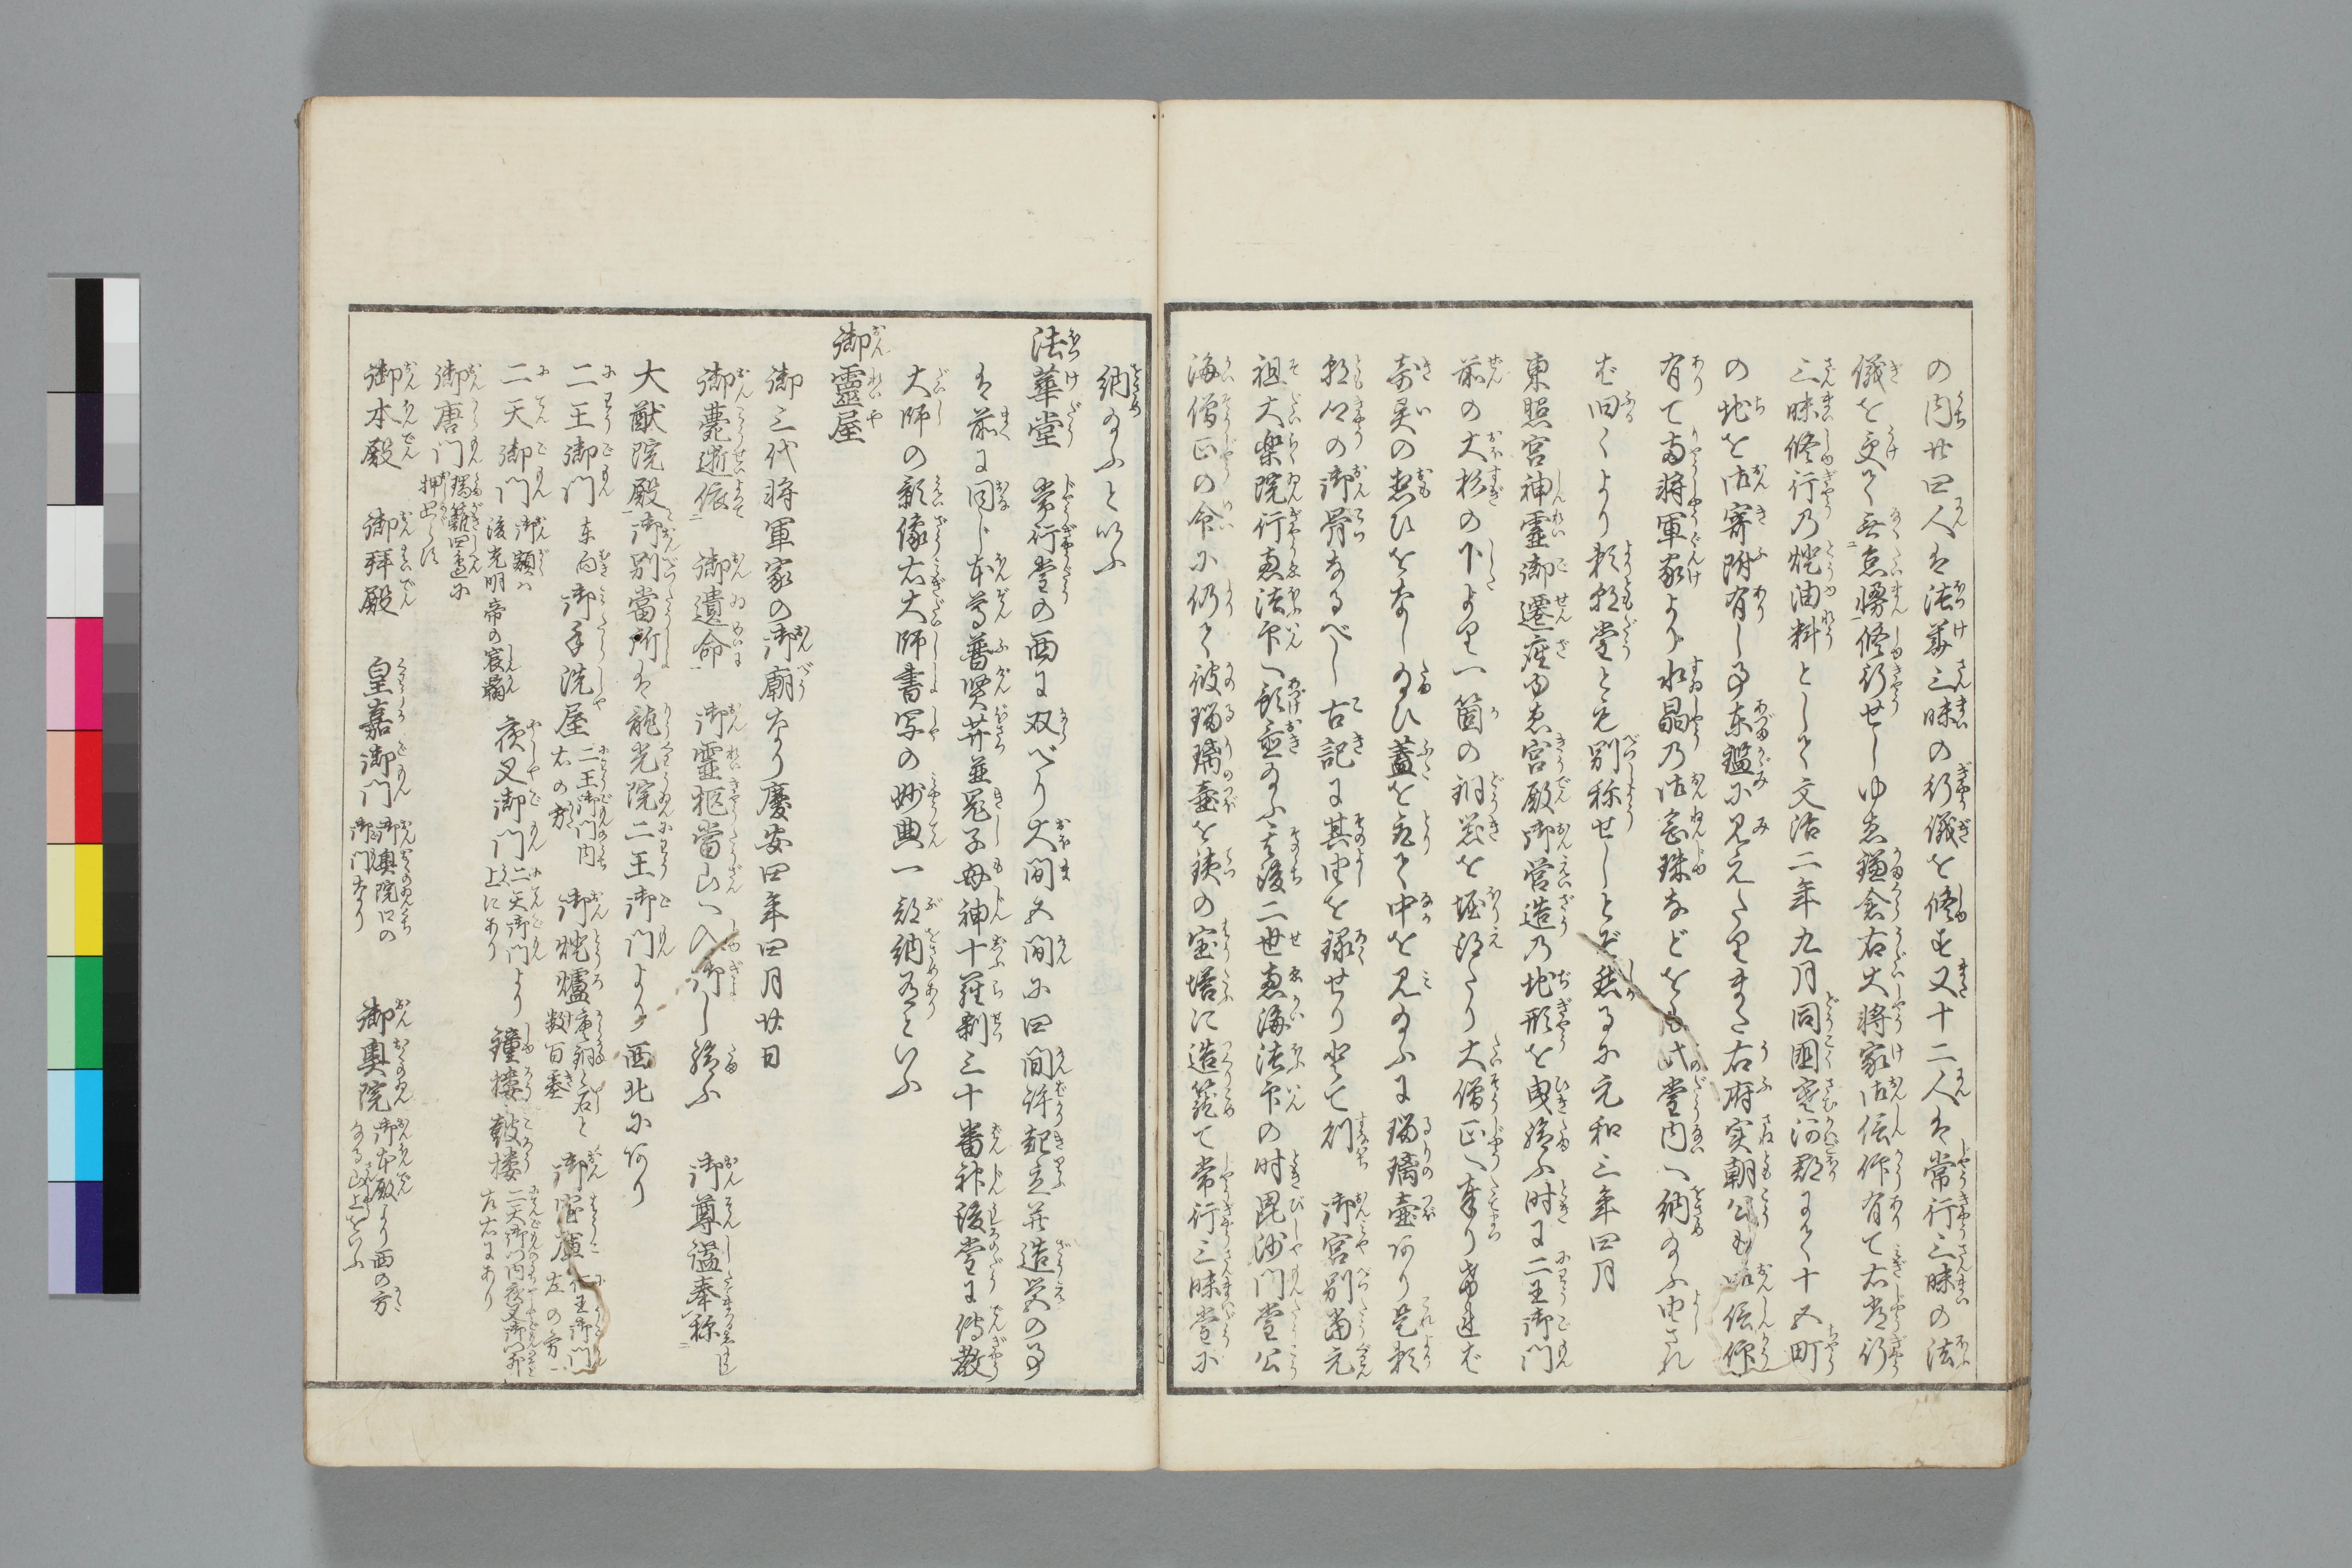 の内廿四人は法華三昧の行儀を修し又十二人は常行三昧の法
儀を受て無怠慢修行せしゆゑ鎌倉右大将家御信仰有て右常行
三昧修行乃燈油料として文治二年九月同国寒河郡にて十五町
の地を御寄附有し事東鑑に見えたりまた右府実朝公も御信仰
有て両将軍家より水晶乃御念珠などをも此堂内へ納給ふ由され
ば旧くより頼朝堂とも別称せしとぞ然るに元和三年四月
東照宮神霊御遷座ゆゑ宮殿御営造乃地形を曳給ふ時に二王御門
前の大杉の下より一箇の銅器を堀得たり大僧正へ奉り
奇異の思ひをなし給ひ蓋を取て中を見給ふに瑠璃壺あり是頼
朝公の御骨なるべし古記に其由を録せり 御宮別当元
祖大楽院行恵法印へ預置給ふ其後二世恵海法印の時毘沙門堂公
海僧正の命に仍て彼瑠璃壺を銕の宝塔に造籠て常行三昧堂に
納給ふといふ
法華堂 常行堂の西に双べり大間五間に四間許起立并造営の事
は前に同じ本尊普賢菩薩鬼子母神十羅刹三十番神後堂に伝教
大師の影像右大師書写の妙典一部納有といふ
御霊屋
御三代将軍家の御廟なり慶安四年四月廿日
御薨逝依 御遺命 御霊柩当山へ入御し給ふ 御尊諡奉称
大猷院殿御別當所は龍光院二王御門より西北にあり
二王御門 東向御手洗屋 二王御門内右の方 御燈爐 唐銅と石と数百基 御宝庫 仁王御門左の方
二天御門 御額は後光明帝の宸翰 夜叉御門 二天御門より上にあり 鐘楼 鼓楼 二天御門内夜叉御門前左右にあり
御唐門 瑞籬四邊に
御本殿 御拜殿 皇嘉御門 御奥院口の御門なり 御奥院 御本殿より西の方なる山上をいふ